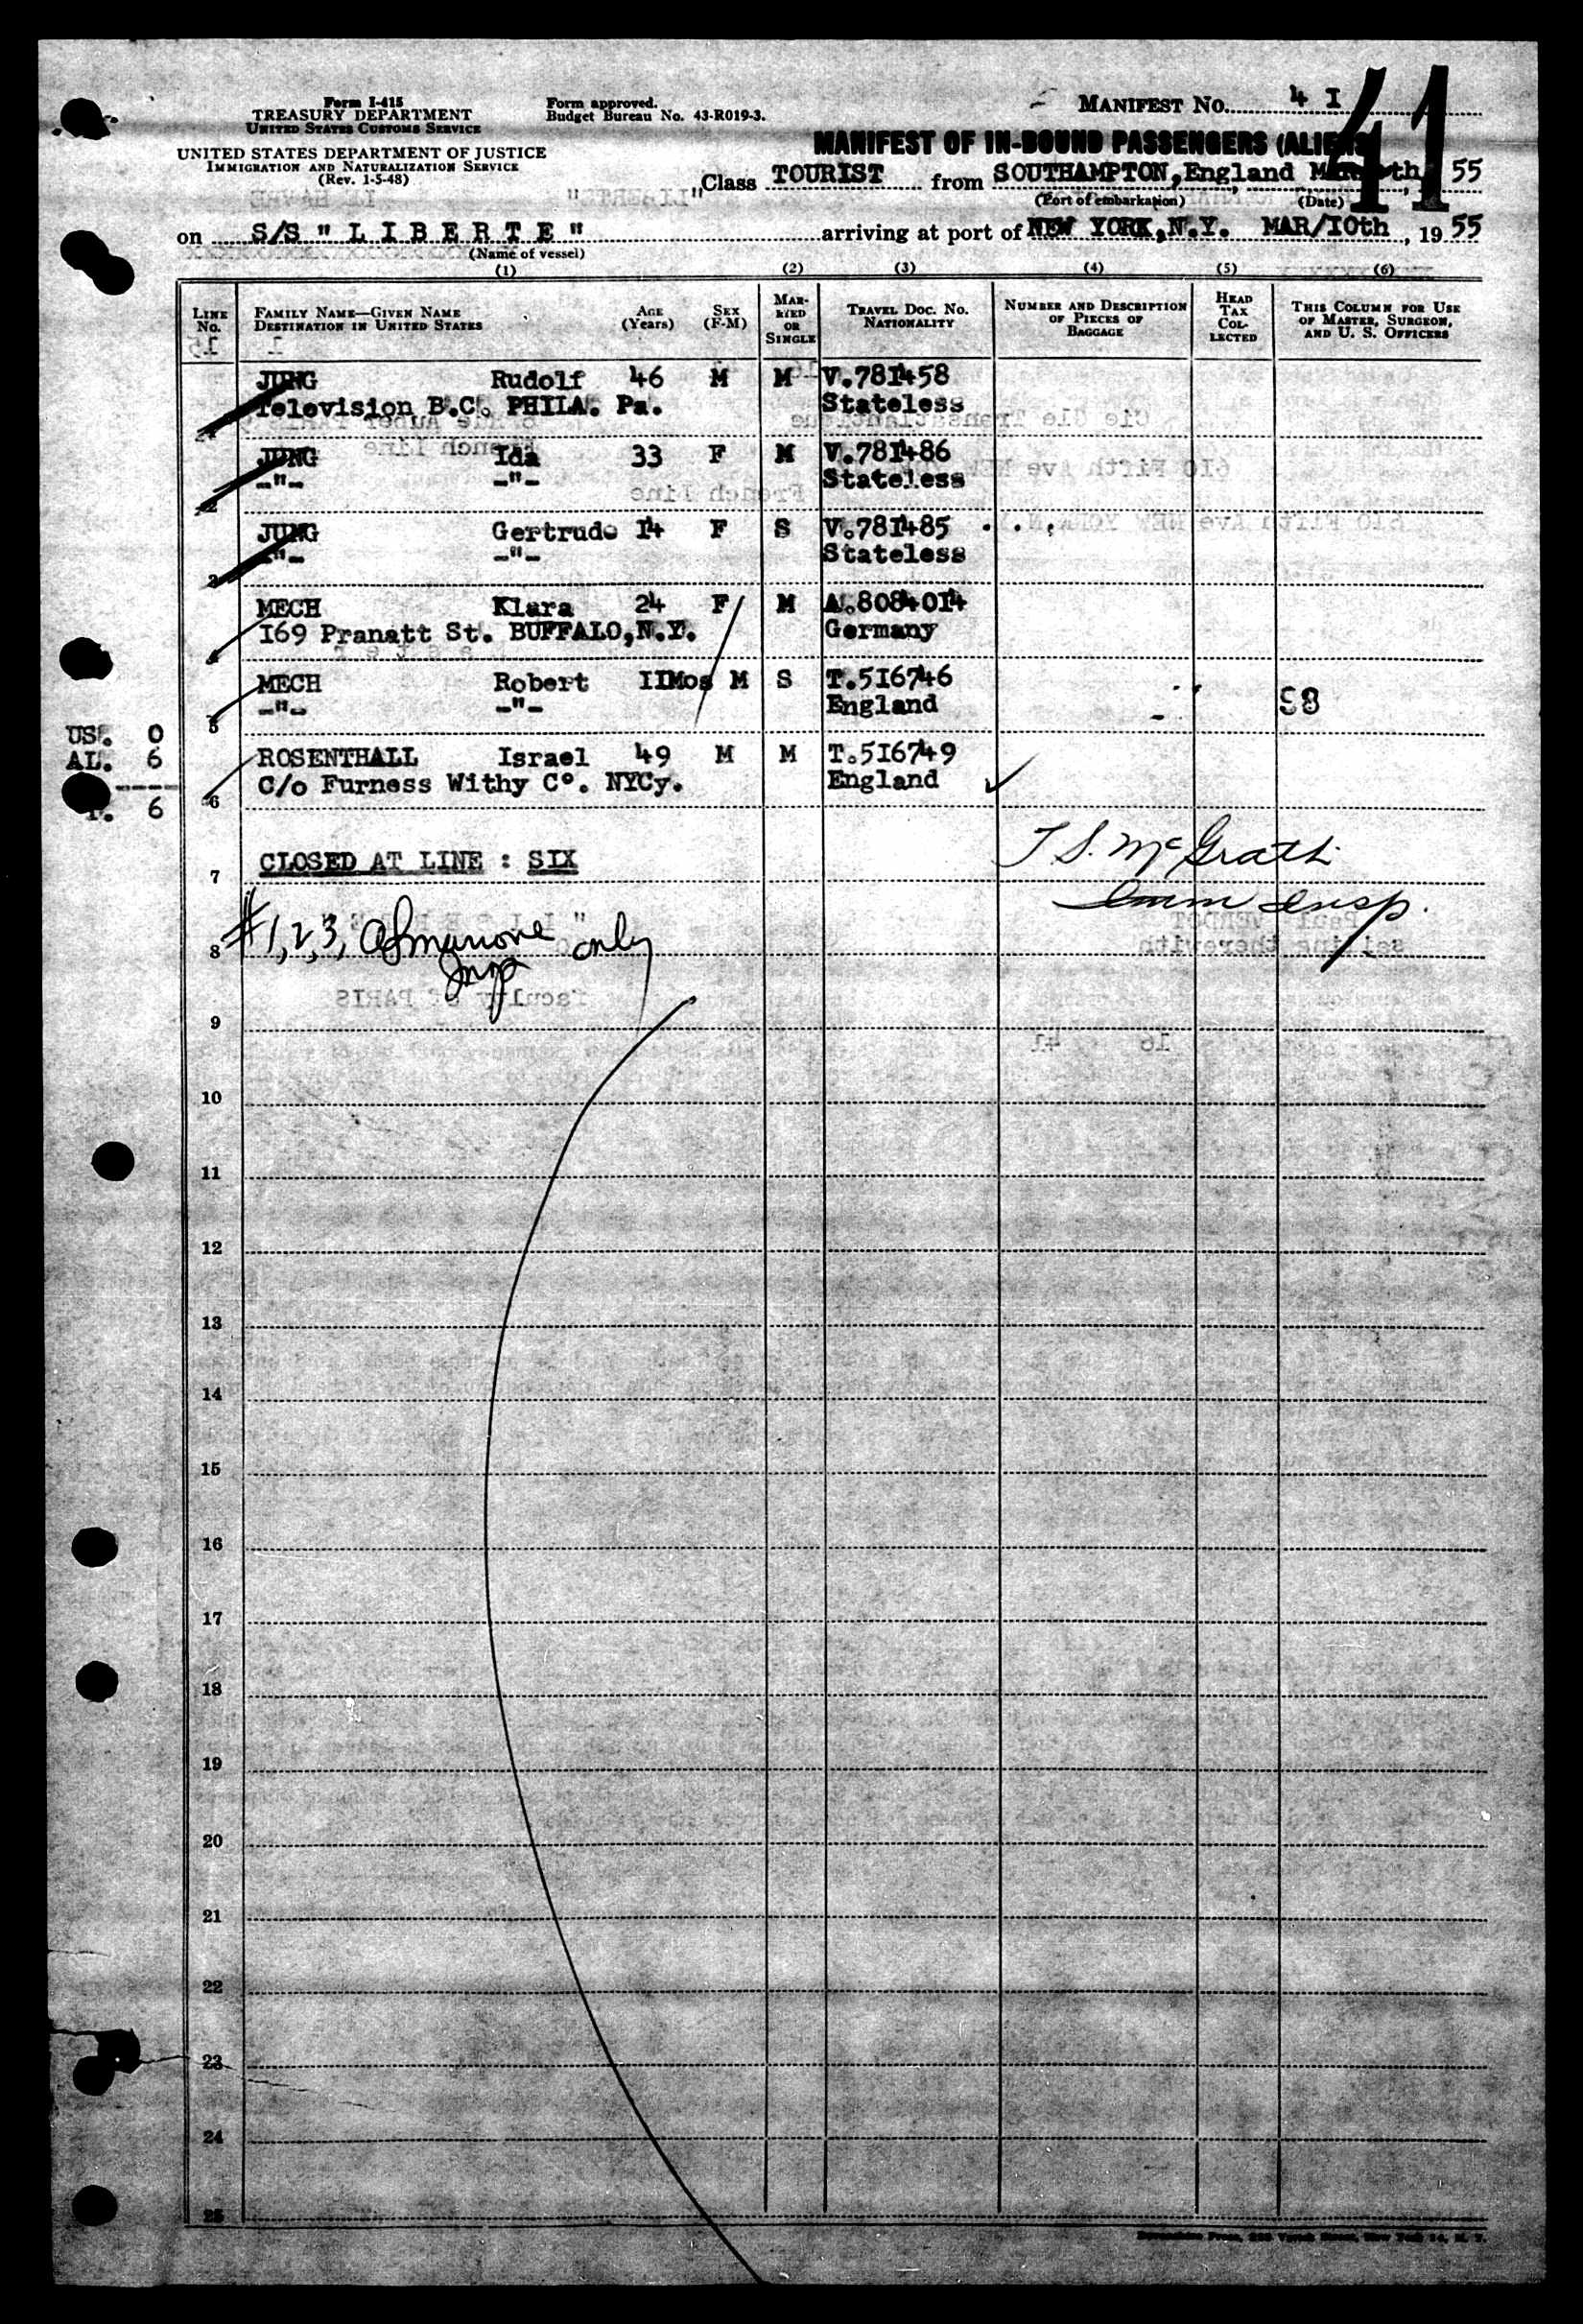 Form I-415
TREASURY DEPARTMENT
UNITED STATES CUSTOMS SERVICE
UNITED STATES DEPARTMENT OF JUSTICE
IMMIGRATION AND NATURALIZATION SERVICE
(Rev. 1-5-48)
Form approved.
Budget Bureau No. 43-R019-3.
MANIFEST NO. 4 I
41
MANIFEST OF IN-BOUND PASSENGERS (ALIENS)
Class TOURIST from SOUTHAMPTON, England 55
(Port of embarkation) (Date)
on S/S " L I B E R T E " arriving at port of NEW YORK, N.Y. MAR/IOth, 19 55
(Name of vessel)
(1) (2) (3) (4) (5) (6)
LINE No.
FAMILY NAME—GIVEN NAME
DESTINATION IN UNITED STATES
AGE (Years)
SEX (F-M)
MARRIED OR SINGLE
TRAVEL DOC. NO.
NATIONALITY
NUMBER AND DESCRIPTION OF PIECES OF BAGGAGE
HEAD TAX COLLECTED
THIS COLUMN FOR USE OF MASTER, SURGEON, AND U. S. OFFICERS
JUNG Rudolf 46 M M V.78I458
Television B.C. PHILA. Pa. Stateless
JUNG Ida 33 F M V.78I486
2 -"- -"- Stateless
JUNG Gertrude I4 F S V.78I485
3 -"- -"- Stateless
MECH Klara 24 F M A.80840I4
4 I69 Pranatt St. BUFFALO, N.Y. Germany
MECH Robert IIMos M S T.5I6746
5 -"- -"- England 98
US. 0
AL. 6
T. 6
ROSENTHALL Israel 49 M M T.5I6749
6 C/o Furness Withy C°. NYCy. England
T S. McGrath
Imm Insp.
7 CLOSED AT LINE : SIX
#1, 2, 3, only
Insp
8
9
10
11
12
13
14
15
16
17
18
19
20
21
22
23
24
25